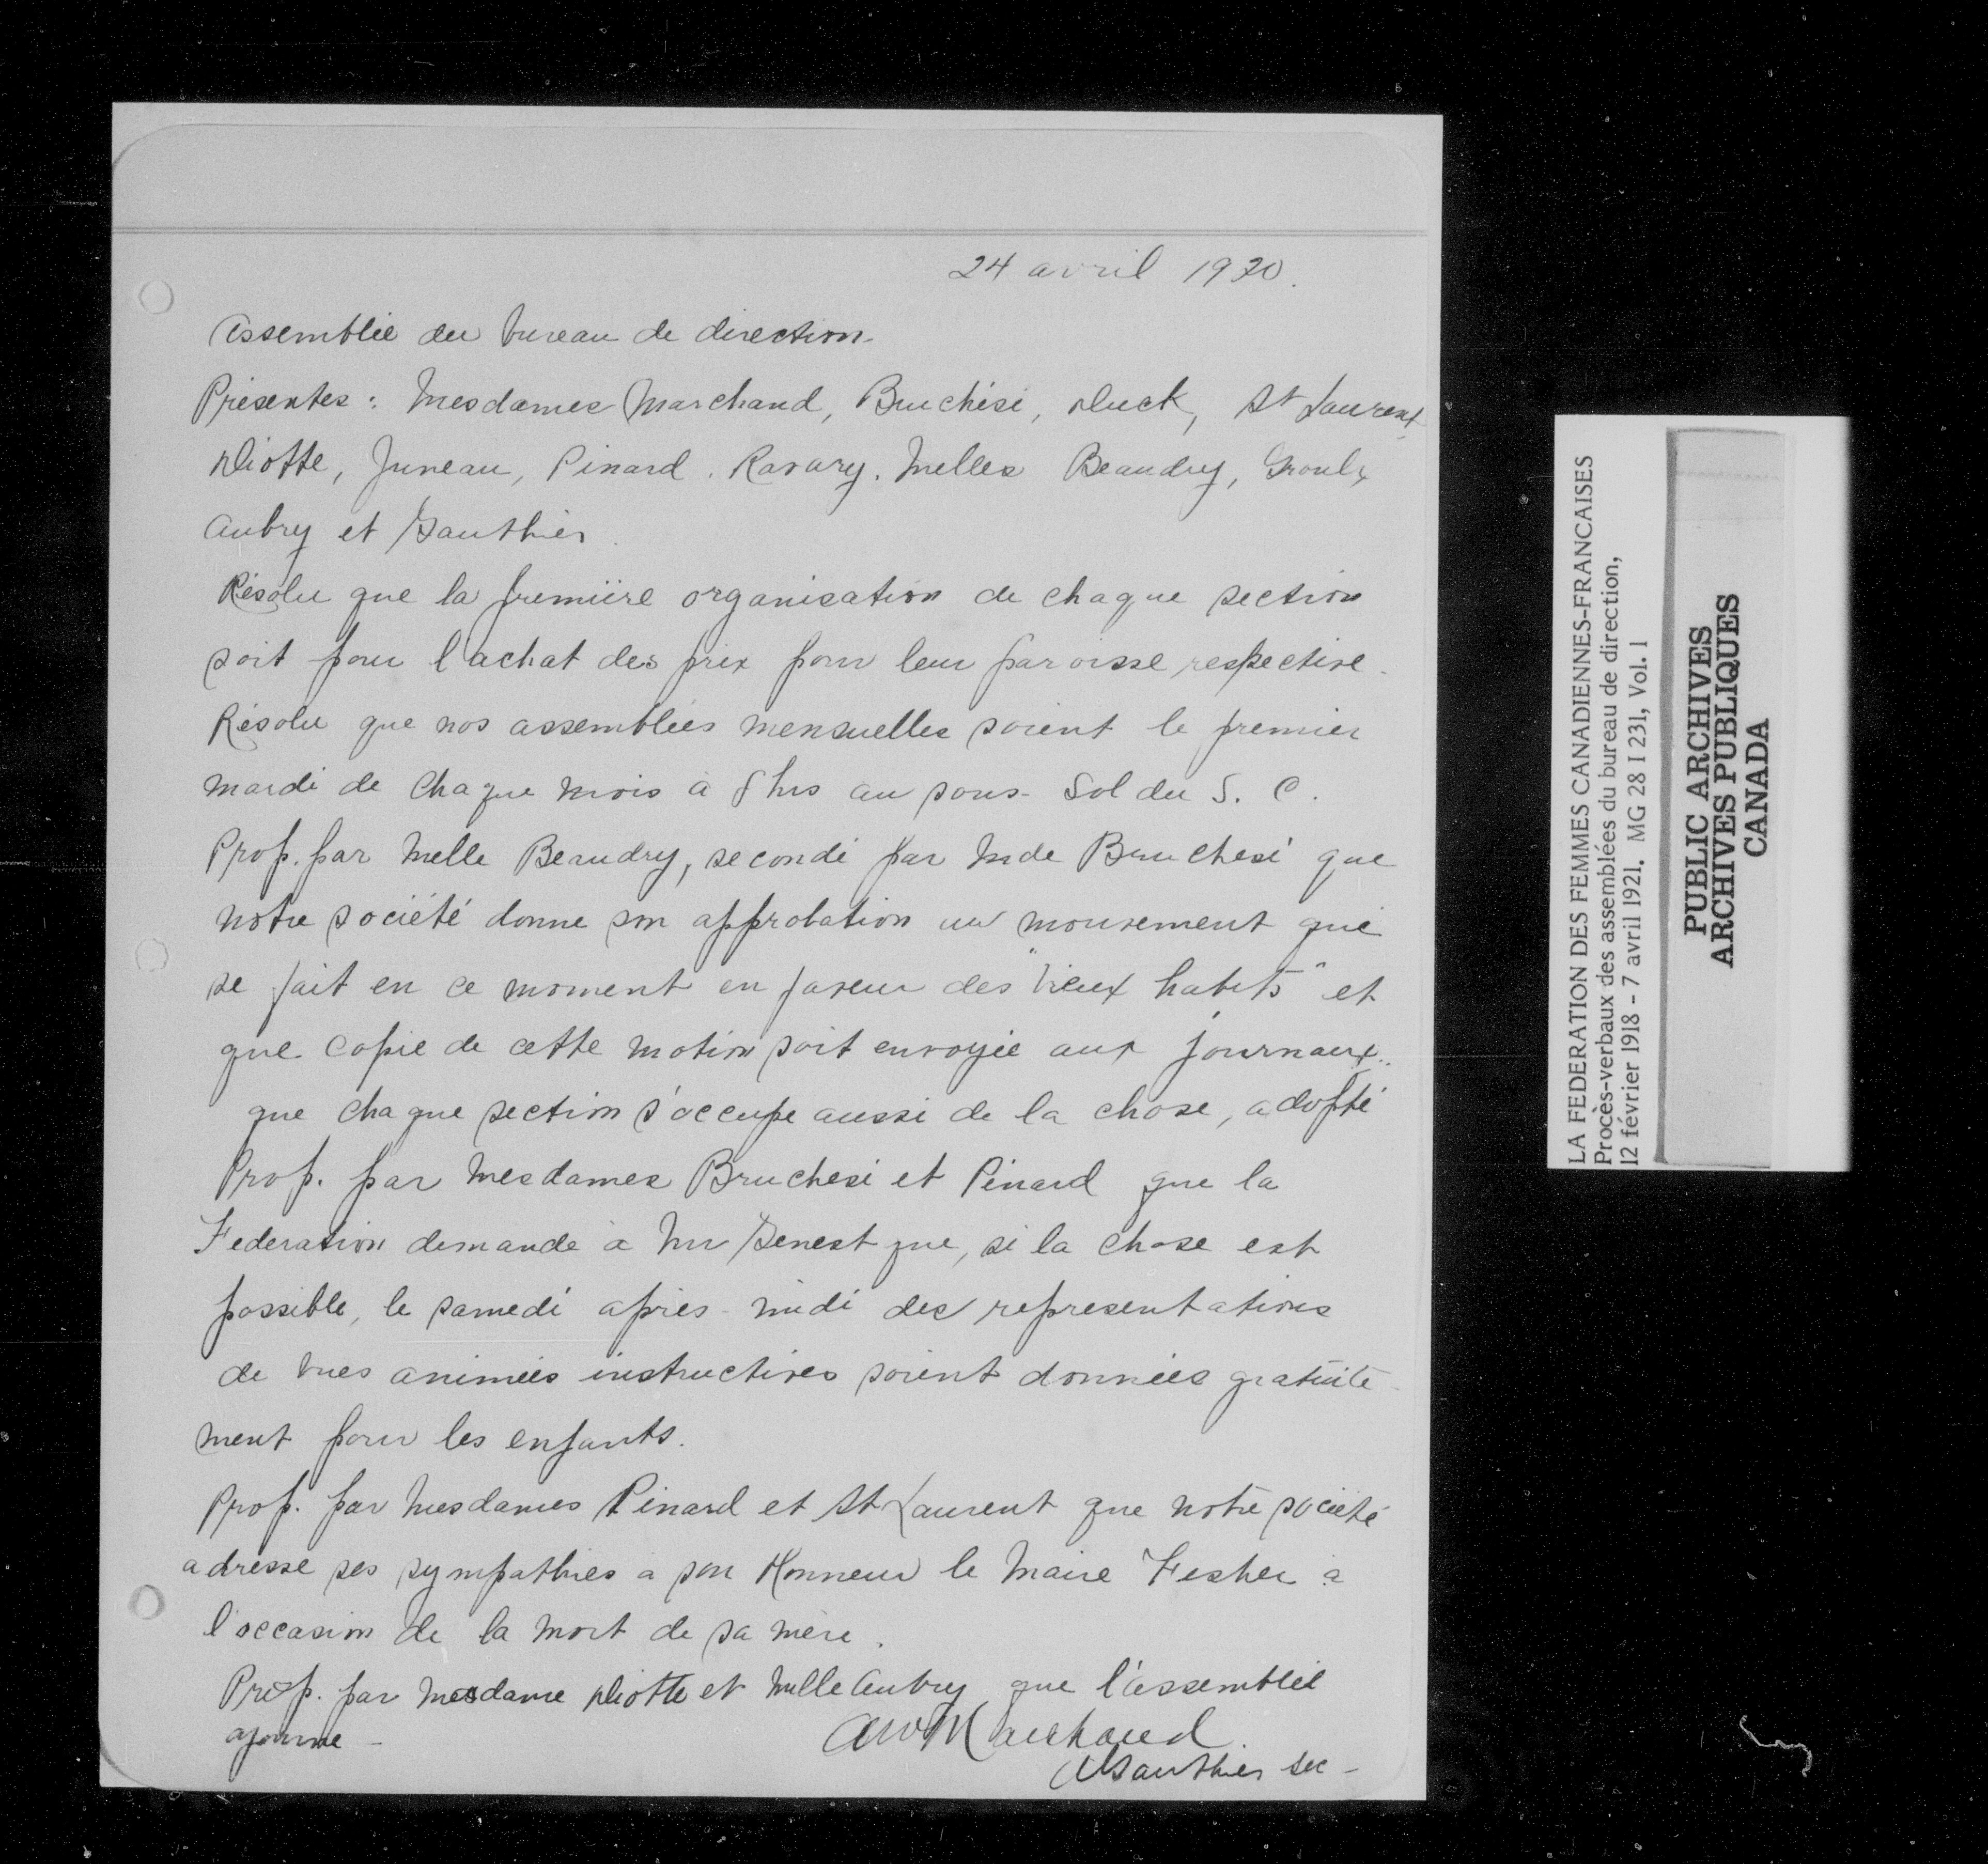 24 avril 1920.
Assemblée du bureau de direction.
Présentes : Mesdames Marchand, Bruchési, Duck, St Laurent,
Diotte, Juneau, Pinard. Ravary. Melles Beaudry, Groulx
Aubry et Gauthier.
Résolu que la première organisation de chaque section
soit pour l'achat des prix pour leur paroisse respective.
Résolu que nos assemblées mensuelles soient le premier
mardi de chaque mois à 8 hrs au sous-sol du S. C.
Prop. par Melle Beaudry, secondé par Mde Bruchesi que
notre société donne son approbation au mouvement qui
se fait en ce moment en faveur des "vieux habits" et
que copie de cette motion soit envoyée aux journaux..
que chaque section s'occupe aussi de la chose, adopté
Prop. par Mesdames Bruchesi et Pinard que la
Federation demande à Mr Genest que, si la chose est
possible, le samedi après-midi des representations
de vues animées instructives soient données gratuite-
ment pour les enfants.
Prop. par Mesdames Pinard et St Laurent que notre société
adresse ses sympathies a son Honneur le Maire Fisher à
l'occasion de la mort de sa mère.
Prop. par Mesdame Diotte et Melle Aubry que l'assemblée
ajourne -
AW Marchand
Gauthier sec -
LA FEDERATION DES FEMMES CANADIENNES-FRANCAISES
Procès-verbaux des assemblées du bureau de direction,
12 février 1918 - 7 avril 1921. MG 28 I 231, Vol. 1
PUBLIC ARCHIVES
ARCHIVES PUBLIQUES
CANADA